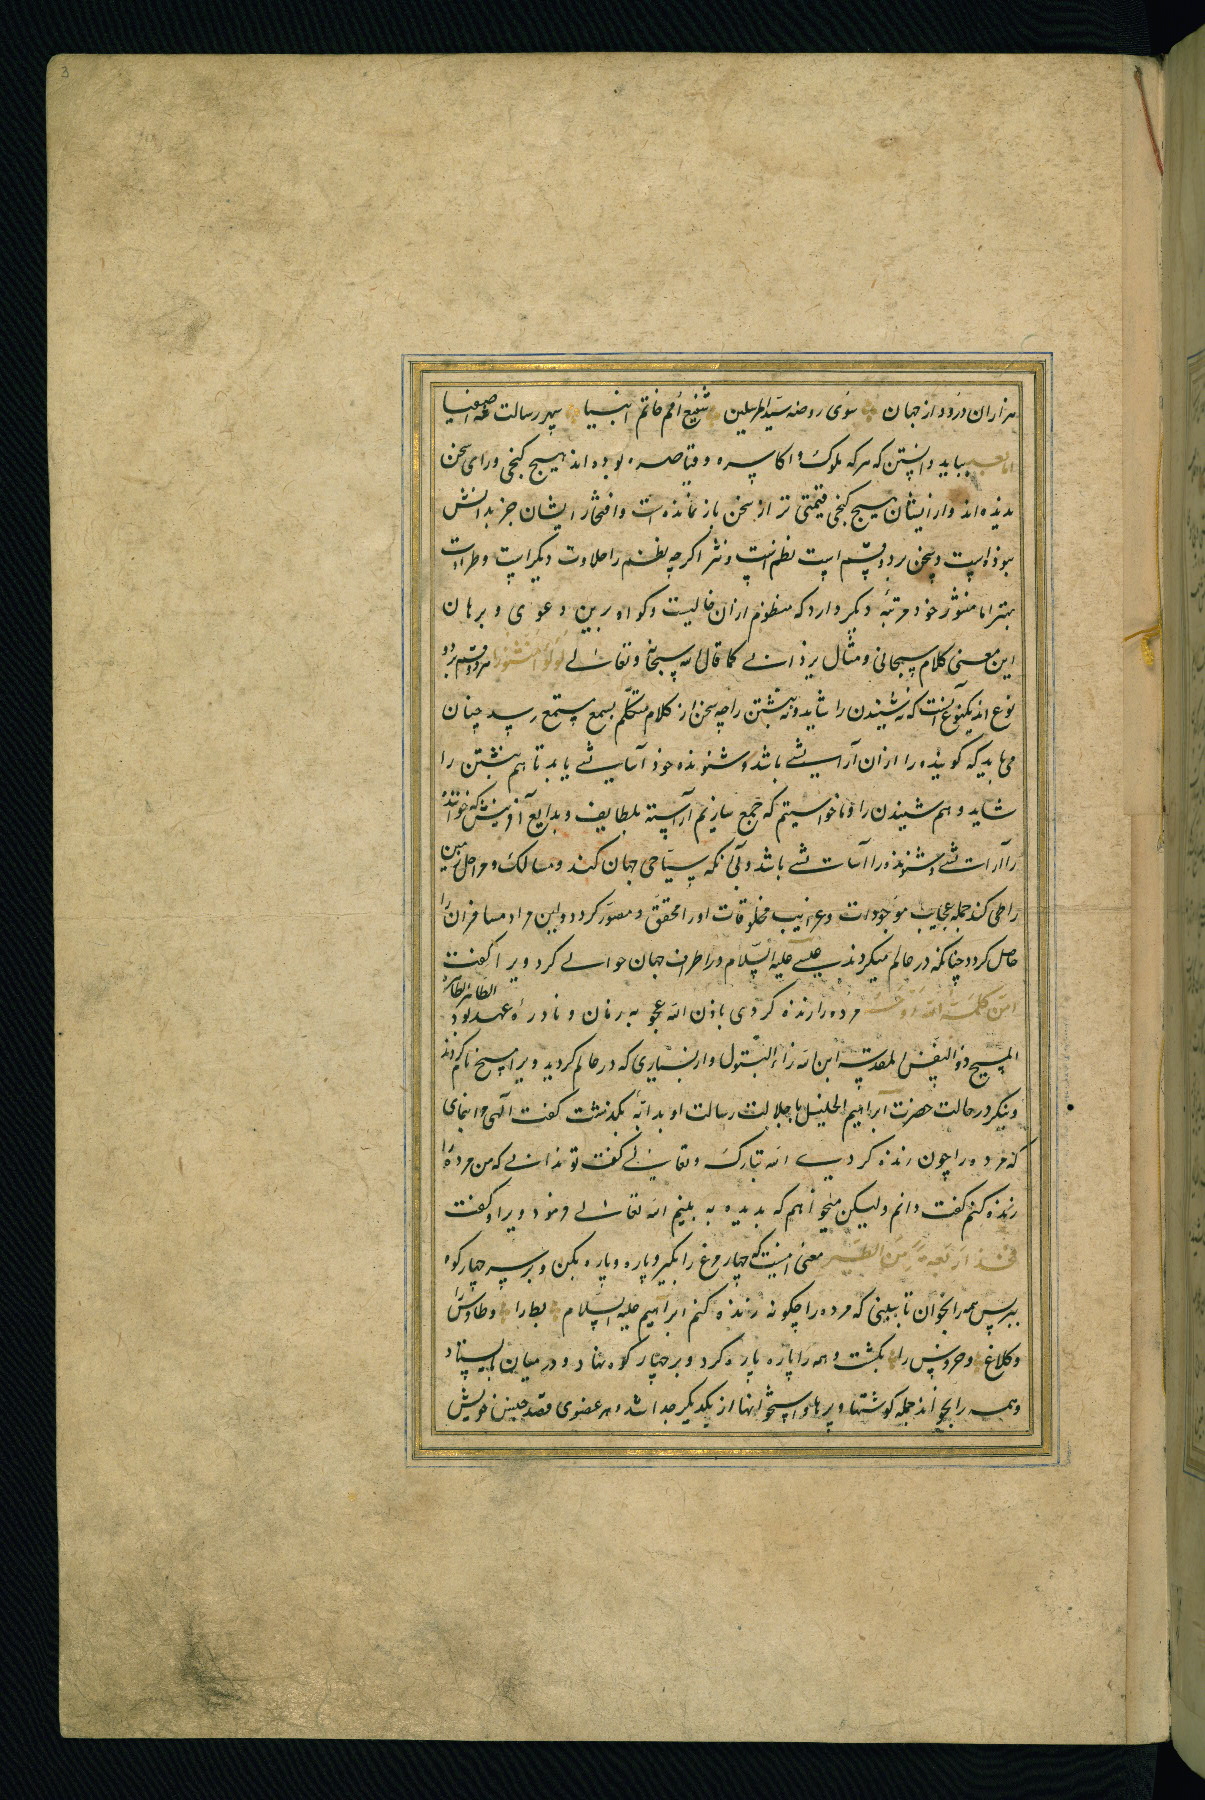 3
هزاران درود از جهان سوی روضه سید المرسلین شفیع امم خاتم انبیا سپهر رسالت مه اصفیا
اما بعد بباید دانستن که هر که ملوک و اکاسره و قیاصره بوده اند هیچ گنجی ورای سخن
ندیده اند و از ایشان هیچ گنجی قیمتی تر از سخن باز نمانده است و افتخار ایشان جز بدانش
نبوده است و سخن بر دو قسم است نظم است و نثر اگر چه نظم را حلاوت دیگر است و طراوت
بهتر اما منثور خود مرتبهٔ دیگر دارد که منظوم از آن خالیست و گواه بر این دعوی و برهان
این معنی کلام سبحانی و مثال یزدانی کما قال الله سبحانه و تعالی لؤلؤا منثورا هر دو قسم بر دو
نوع اند یکنوع آنست که نه شنیدن را شاید و نه نبشتن را چه سخن از کلام متکلم بسمع مستمع رسد چنان
می باید که گوینده را از آن آرایشی باشد و شنونده خود آسایشی یابد تا هم نبشتن را
شاید و هم شنیدن را و ما خواستیم که جمع سازیم آراسته بلطایف و بدایع آفرینش که خواننده
را آرایشی و شنونده را آسایشی باشد و بی آنکه سیاحی جهان کند و مسالک و مراحل زمین
را طی کند جمله عجایب موجودات و غرایب مخلوقات او را محقق و مصور گردد و این مراد مسافران را
حاصل گردد چنانکه در عالم میگردند عیسی علیه السلام در اطراف جهان حوالی گردد ویرا گفت
این کلمة الله و روح مرده را زنده کردی باذن الله عجوبه زمان و نادرهٔ عهد بود الطاهر الطاهره
المسیح ذو النفس المقدسه ابن الزهراء البتول و از بسیاری که در عالم گردید ویرا مسیح نام کردند
و بنگر در حالت حضرت ابراهیم الخلیل با جلالت رسالت او بدانه بگذشت گفت الهی وا نمای
که مرده را چون زنده کردی الله تبارک و تعالی گفت تو ندانی که من مرده را
زنده کنم گفت دانم ولیکن میخواهم که بدیده به بینم الله تعالی فرمود ویرا و گفت
فخذ اربعة من الطیر معنی اینست که چهار مرغ را بگیر و پاره و پاره بکن و بر سر چهار کوه
ببر پس همه را بخوان تا ببینی که مرده را چگونه زنده کنم ابراهیم علیه السلام بط را و طاوس را
و کلاغ و خروس را بکشت و همه را پاره پاره کرد و بر چهار کوه نهاد و در میان بایستاد
و همه را بخواند جمله گوشتها و پرها و استخوانها از یکدیگر جدا شد و هر عضوی قصد جنس خویش